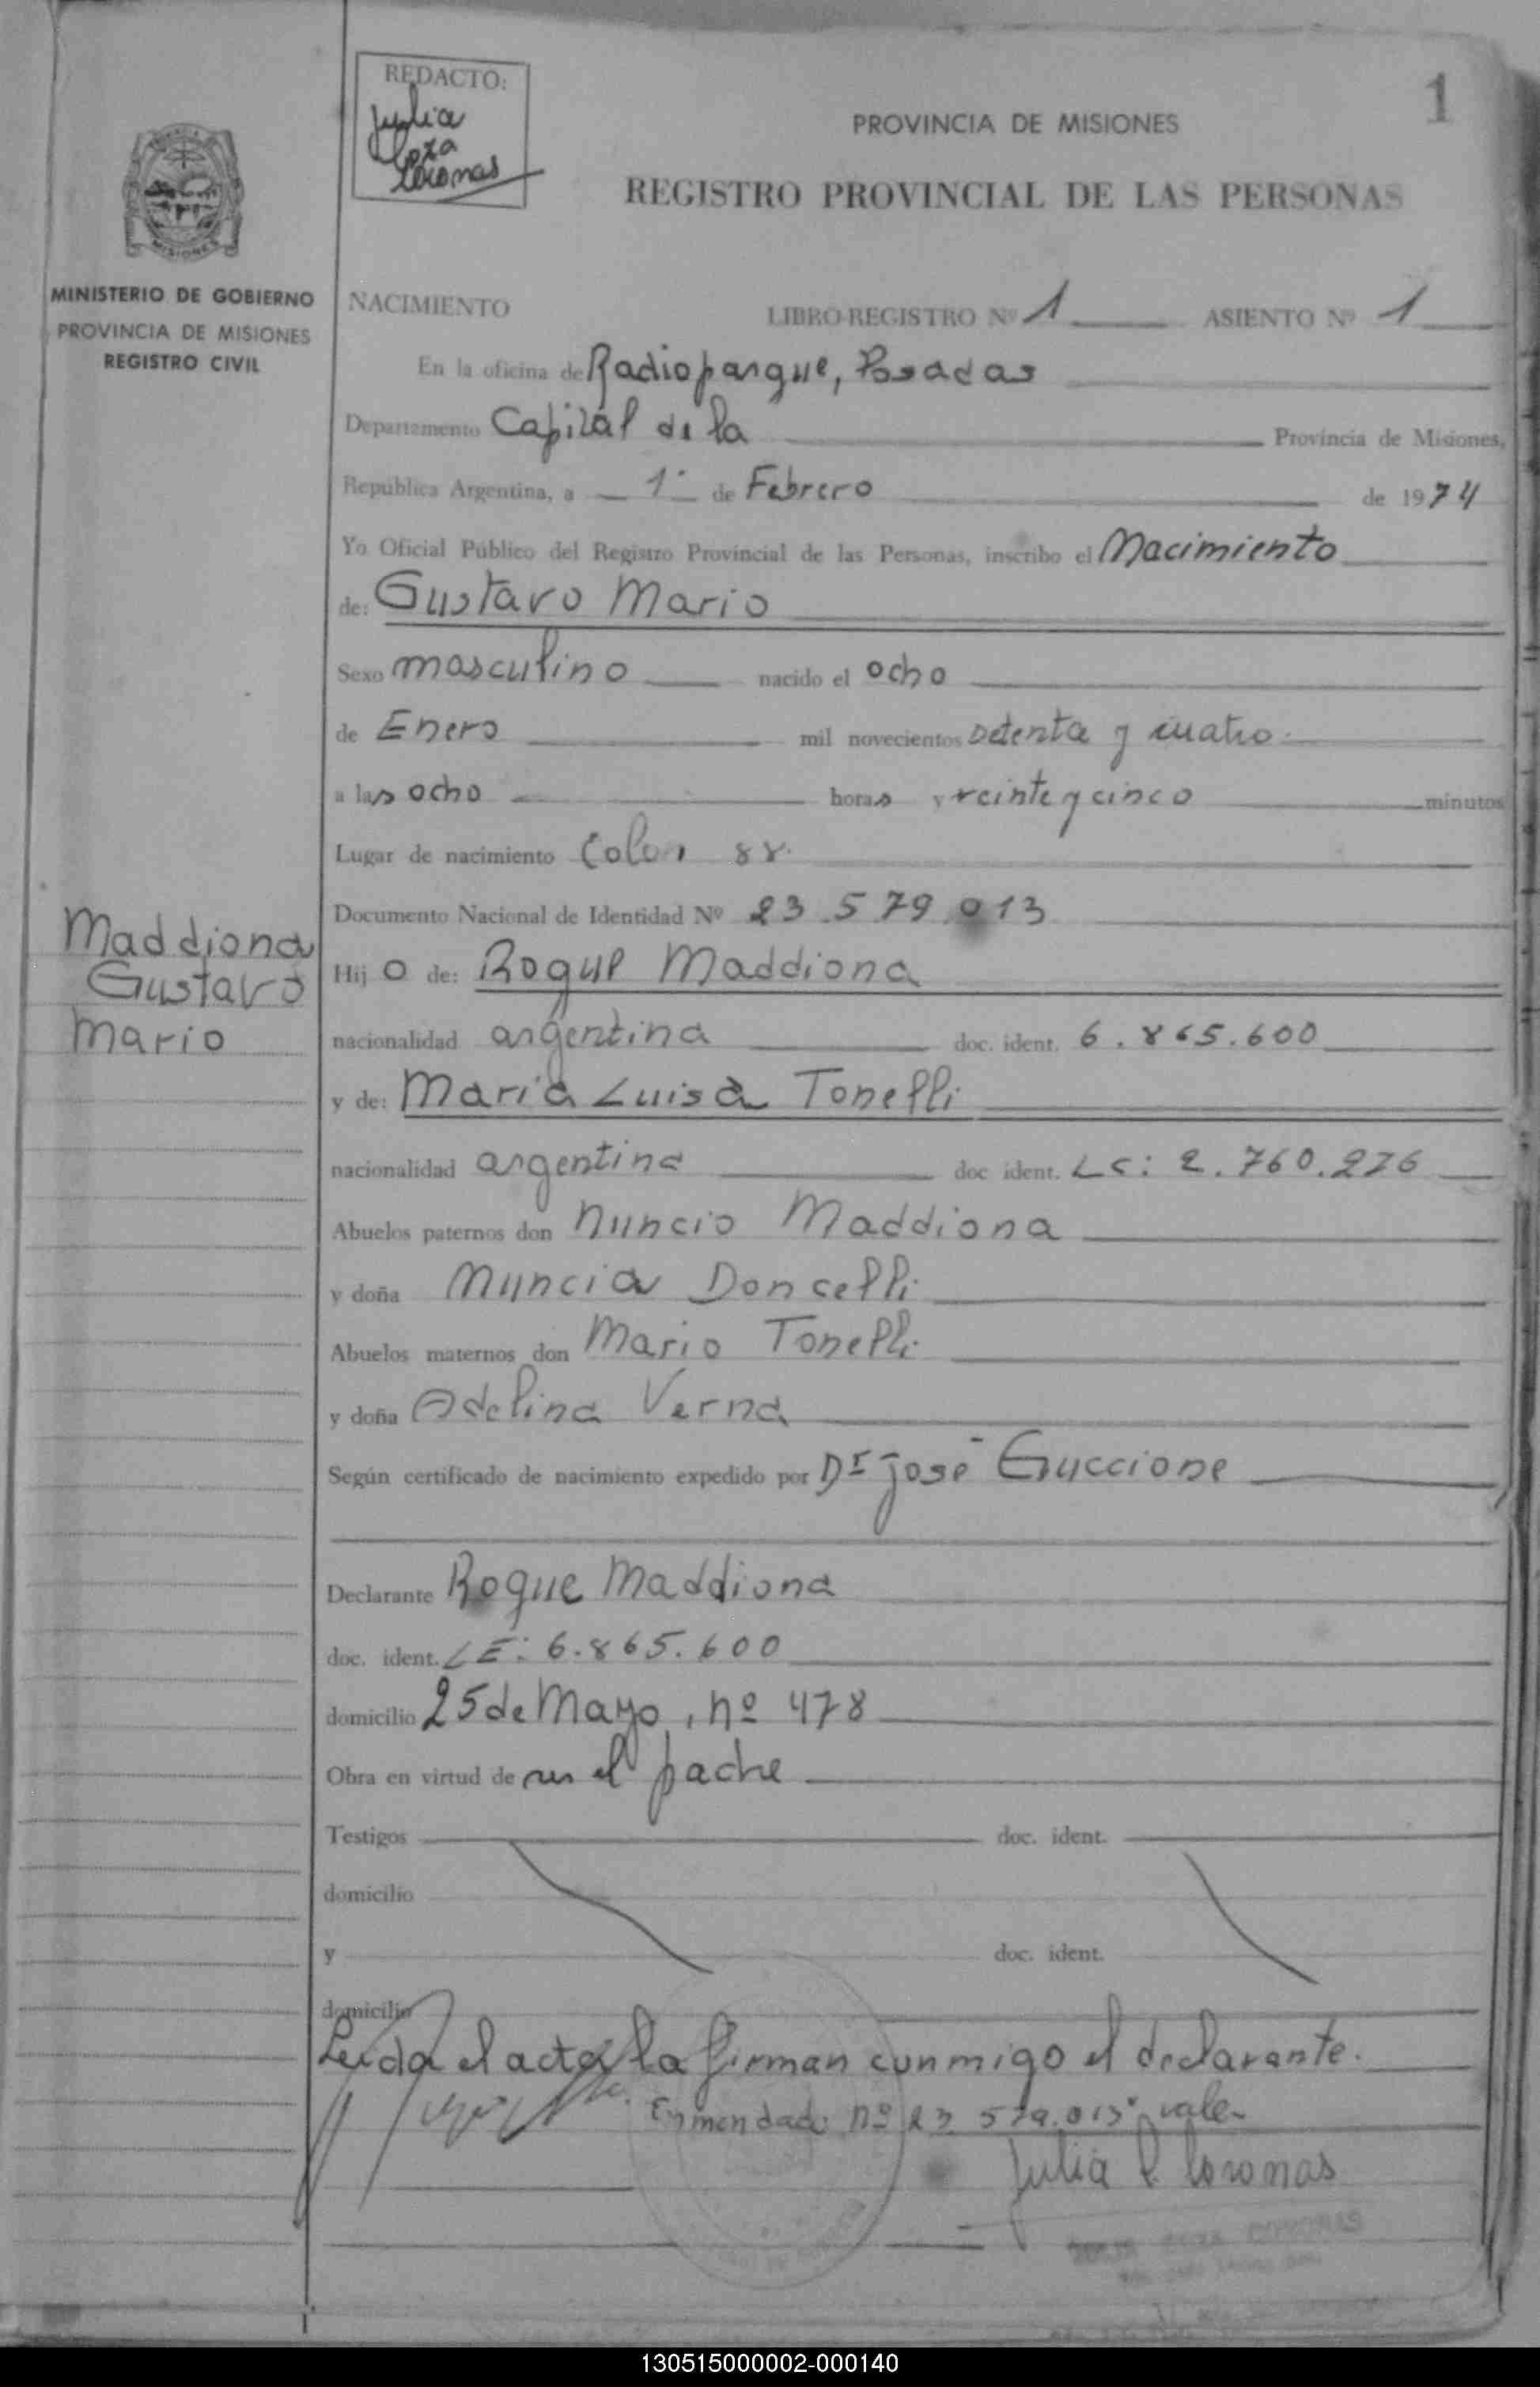 REDACTO:
Julia
Loza
Coronas
1
PROVINCIA DE MISIONES
REGISTRO PROVINCIAL DE LAS PERSONAS
MISIONES
MINISTERIO DE GOBIERNO
PROVINCIA DE MISIONES
REGISTRO CIVIL
NACIMIENTO LIBRO-REGISTRO Nº 1 ASIENTO Nº 1
En la oficina de Radioparque, Posadas
Departamento Capital de la Provincia de Misiones,
República Argentina, a 1º de Febrero de 1974
Yo Oficial Público del Registro Provincial de las Personas, inscribo el Nacimiento
de: Gustavo Mario
Sexo masculino nacido el ocho
de Enero mil novecientos setenta y cuatro.
a las ocho horas y veinte y cinco minutos
Lugar de nacimiento Colon
Documento Nacional de Identidad Nº 23.579.013
Maddiona
Gustavo
Mario
Hijo de: Roque Maddiona
nacionalidad argentina doc. ident. 6.865.600
y de: Maria Luisa Tonelli
nacionalidad argentina doc ident. LC: 2.760.276
Abuelos paternos don Nuncio Maddiona
y doña Nuncia Doncelli
Abuelos maternos don Mario Tonelli
y doña Adelina Verna
Según certificado de nacimiento expedido por Dr José Guccione
Declarante Roque Maddiona
doc. ident. LE: 6.865.600
domicilio 25 de Mayo, nº 478
Obra en virtud de ser el padre
Testigos doc. ident.
domicilio
y doc. ident.
domicilio
Leida el acta la firman conmigo el declarante.
Enmendado nº 23 579.013 vale
Julia L Coronas
130515000002-000140